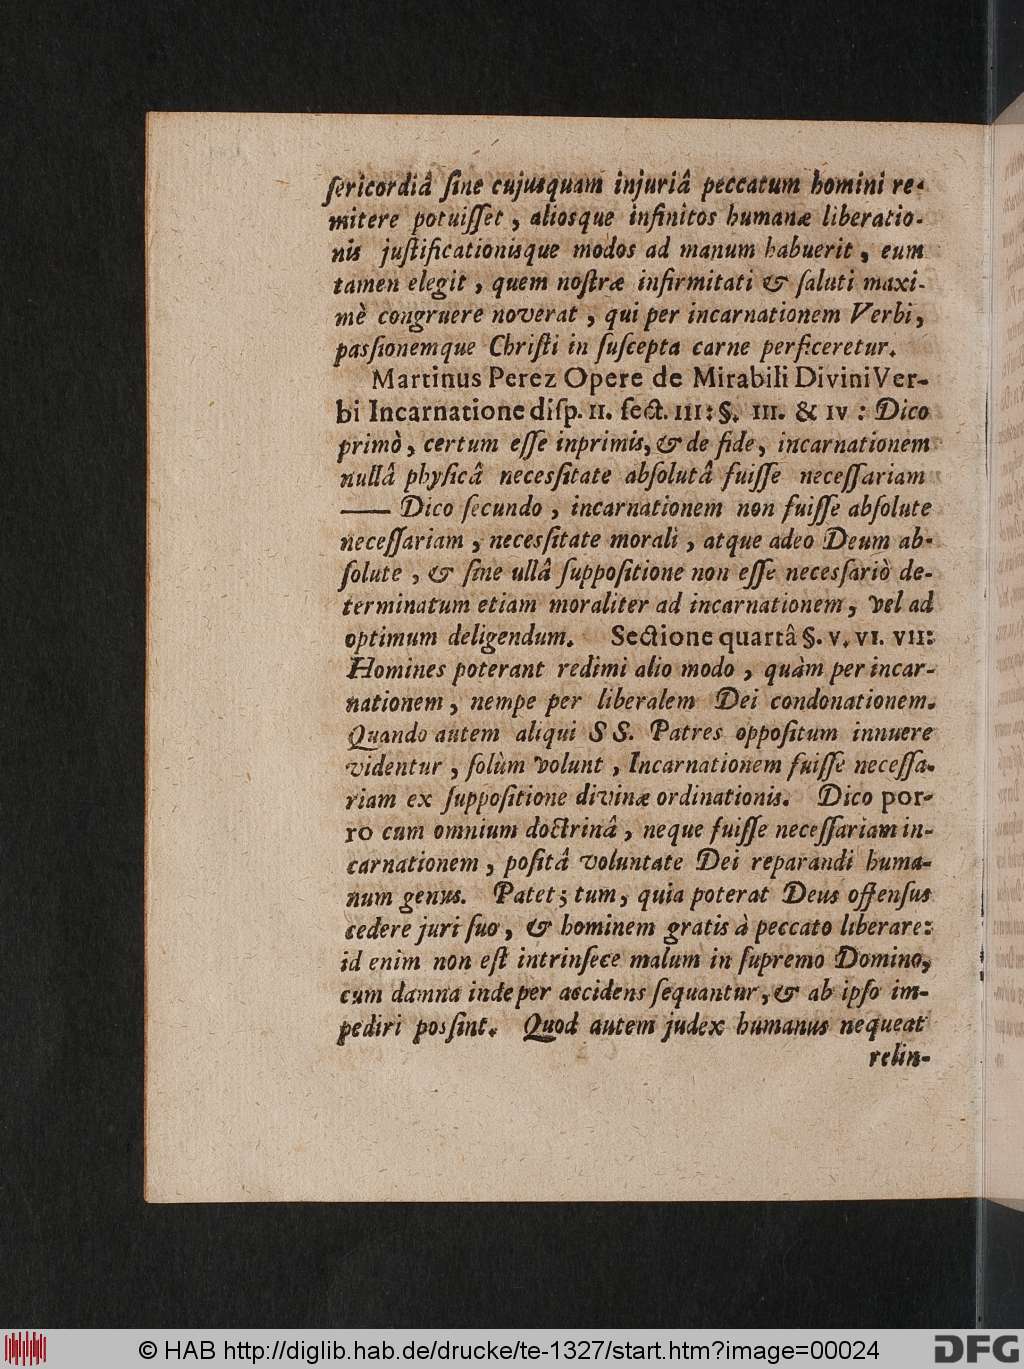 ſericordiâ ſine cujusquam injuriâ peccatum homini re-
mitere potuiſſet, aliosque infinitos humanæ liberatio-
nis juſtificationisque modos ad manum habuerit, eum
tamen elegit, quem noſtræ infirmitati & ſaluti maxi-
mè congruere noverat, qui per incarnationem Verbi,
pasſionemque Chriſti in ſuſcepta carne perficeretur.
Martinus Perez Opere de Mirabili Divini Ver-
bi Incarnatione diſp. II. ſect. III: §. III. & IV: Dico
primò, certum eſſe inprimis, & de fide, incarnationem
nullâ phyſicâ necesſitate abſolutâ fuiſſe neceſſariam
—— Dico ſecundo, incarnationem non fuiſſe abſolute
neceſſariam, necesſitate morali, atque adeo Deum ab-
ſolute, & ſine ullâ ſuppoſitione non eſſe necesſariò de-
terminatum etiam moraliter ad incarnationem, vel ad
optimum deligendum. Sectione quartâ §. V. VI. VII:
Homines poterant redimi alio modo, quàm per incar-
nationem, nempe per liberalem Dei condonationem.
Quando autem aliqui SS. Patres oppoſitum innuere
videntur, ſolùm volunt, Incarnationem fuiſſe neceſſa-
riam ex ſuppoſitione divinæ ordinationis. Dico por-
ro cum omnium doctrinâ, neque fuiſſe neceſſariam in-
carnationem, poſitâ voluntate Dei reparandi huma-
num genus. Patet; tum, quia poterat Deus offenſus
cedere juri ſuo, & hominem gratis à peccato liberare:
id enim non eſt intrinſece malum in ſupremo Domino,
cum damna inde per accidens ſequantur, & ab ipſo im-
pediri posſint. Quod autem judex humanus nequeat
relin-
© HAB http://diglib.hab.de/drucke/te-1327/start.htm?image=00024
DFG